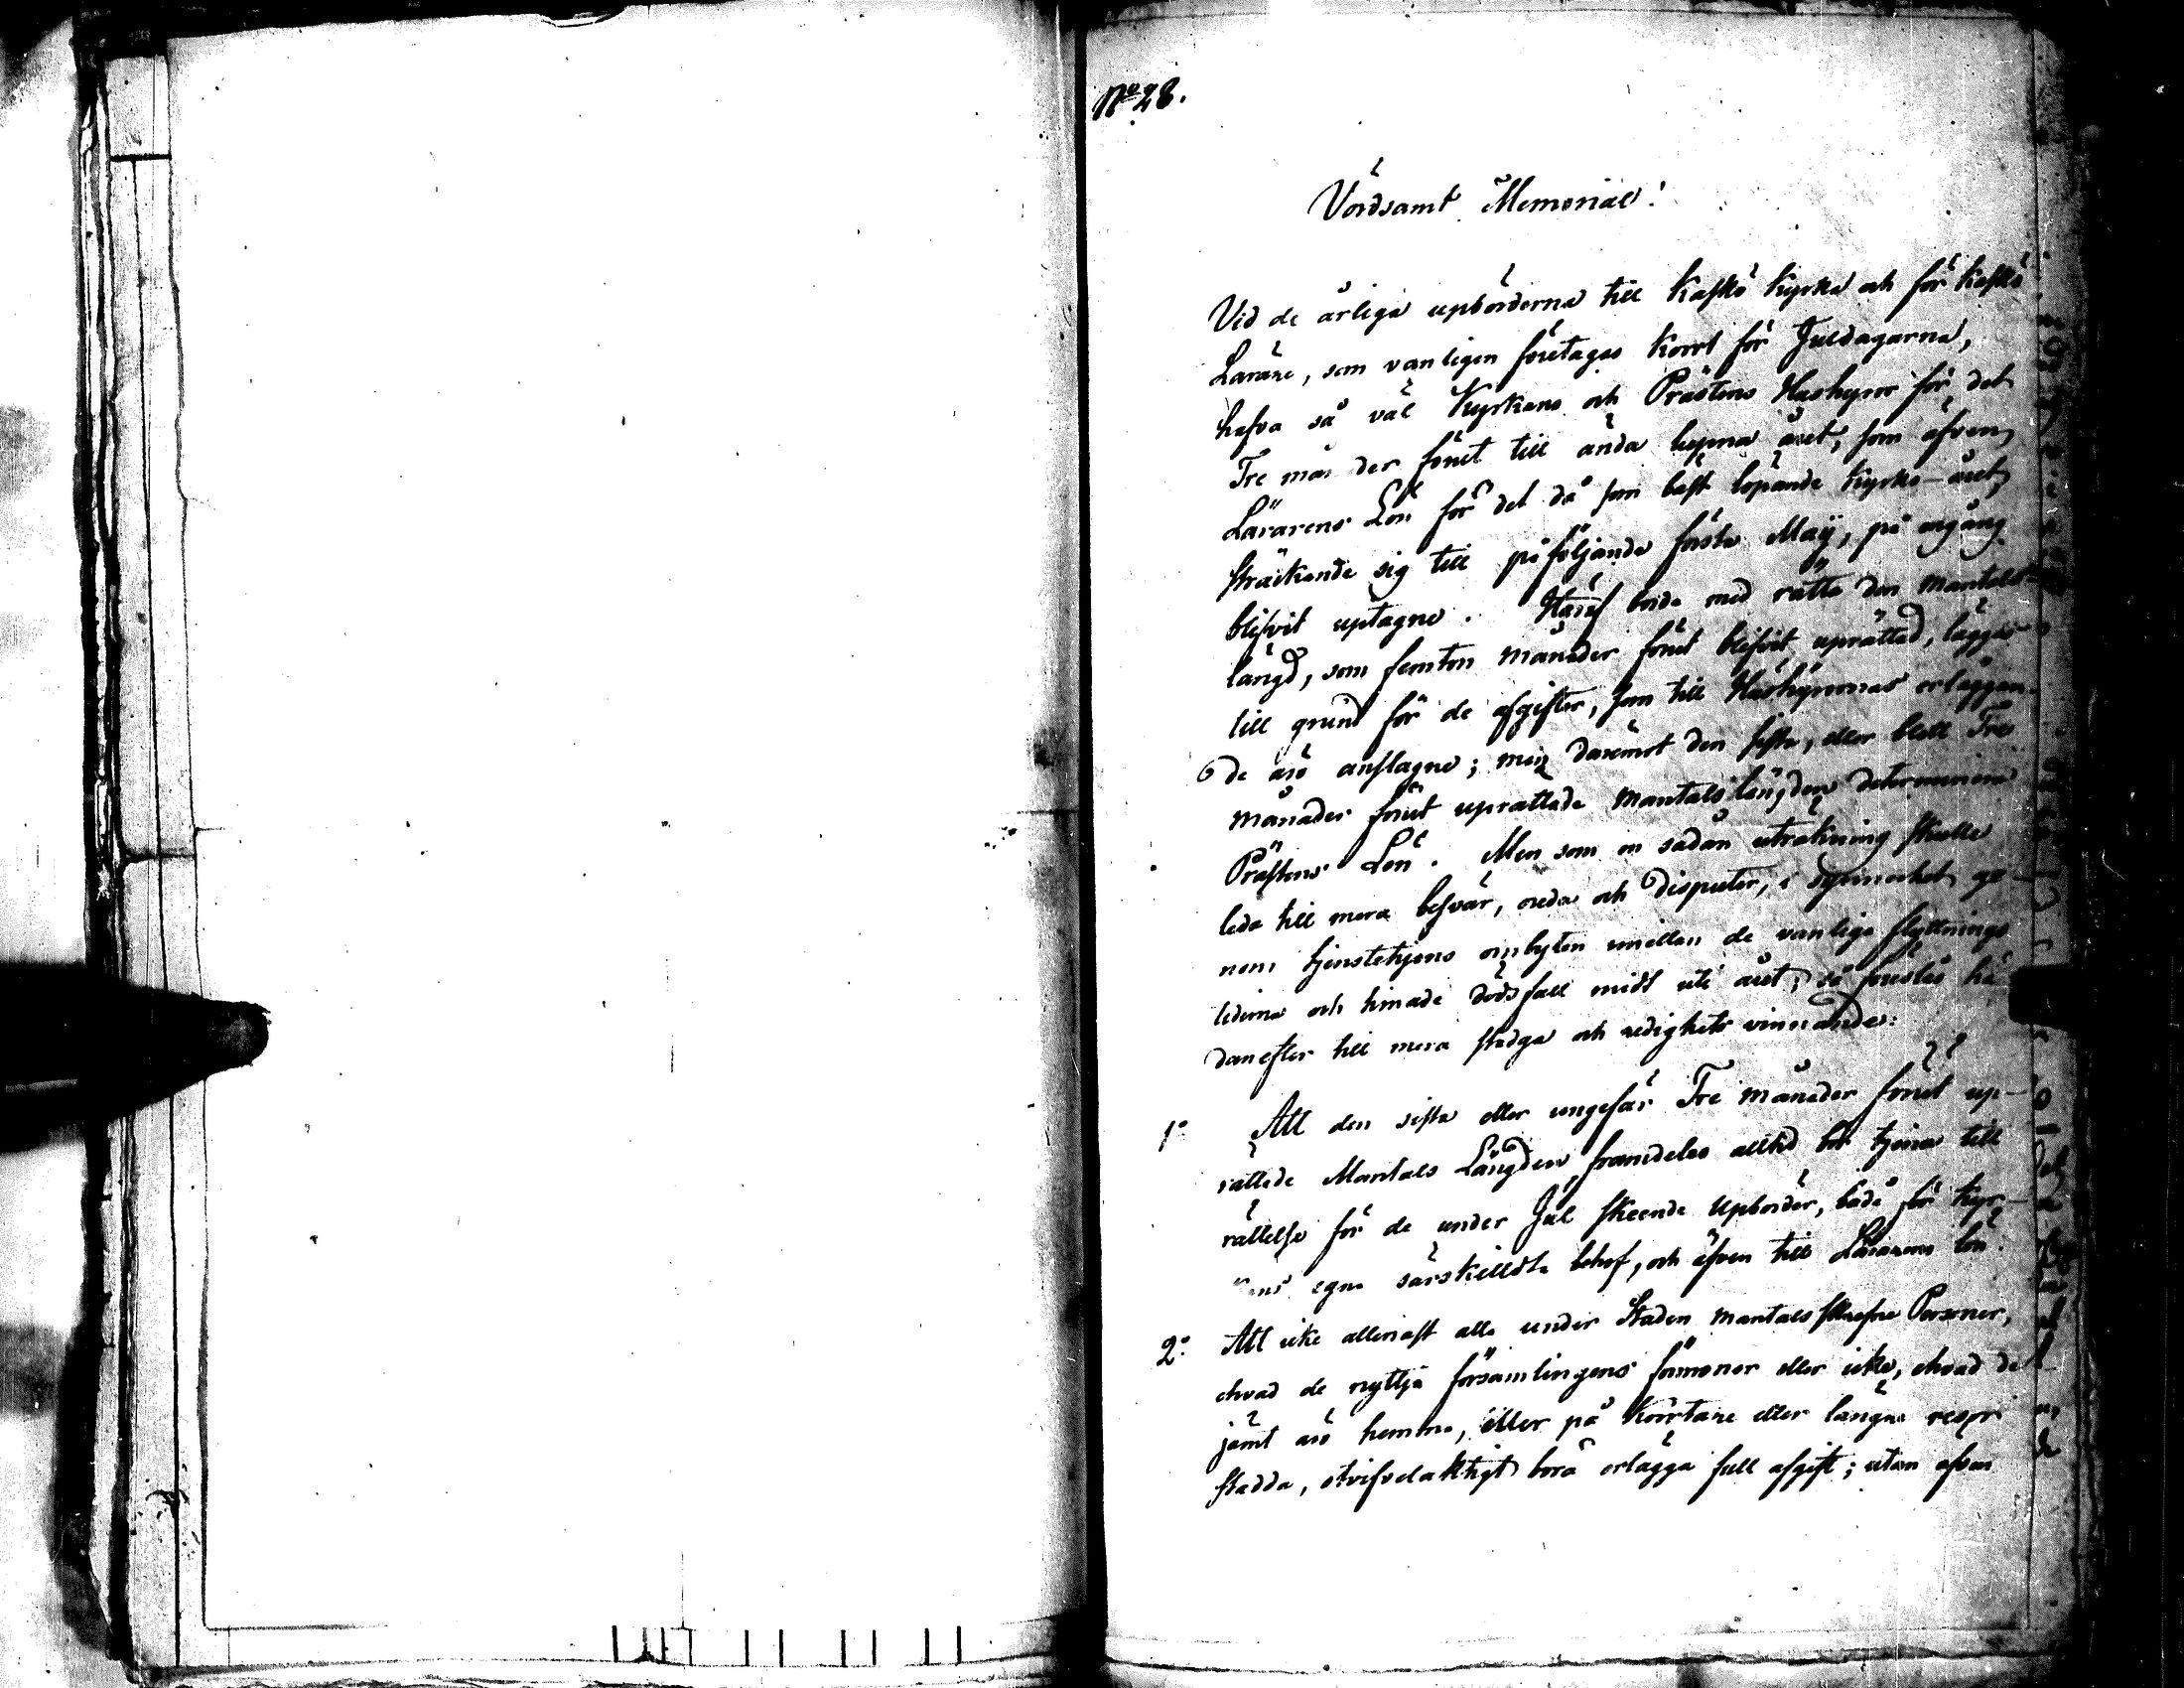 No 28.
Vördsamt Memorial!
Vid de årliga upbörderna till Kaskö Kyrka och för Kaskö
Lärare, som vanligen företages kort för Juldagarna,
hafva så väl Kyrkans och Prästens Hushyror för det
Tre mån der förut till ända lupna året, som äfven
Lärarens Lön för det då som bäst löpande Kyrko-året,
sträckande sig till påföljande första Maij, på en gång
blifvit uptagne. Häraf borde med rätta den Mantals-
längd, som femton månader förut blifvit uprättad, läggas
till grund för de afgifter, som till Hushyrornas erläggan-
de äro anslagne; men däremot den sista, eller blott Tre
månader förut uprättade Mantalslängden determinera
Prästens Lön. Men som en sådan uträkning skulle
leda till mera besvär, oreda och disputer, i synnerhet ge-
nom tjenstehjons ombyten emellan de vanliga flyttnings
tiderna och timade dödsfall midt uti året; så föreslås hä-
danefter till mera stadga och redighets vinnande:
1o Att den sista eller ungefär Tre månader förut up-
rättade Mantals Längden framdeles alltid bör tjena till
rättelse för de under Jul skeende Upbörder, både för Kyr-
kans egna särskilldta behof, och äfven till Lärarens lön.
2o Att icke allenast alla under Staden mantalsskrefne Personer,
ehvad de nyttja församlingens förmoner eller icke, ehvad de
jämt äro hemma, eller på kortare eller längre resor
stadda, otvifvelaktigt böra erlägga full afgift; utan äfven